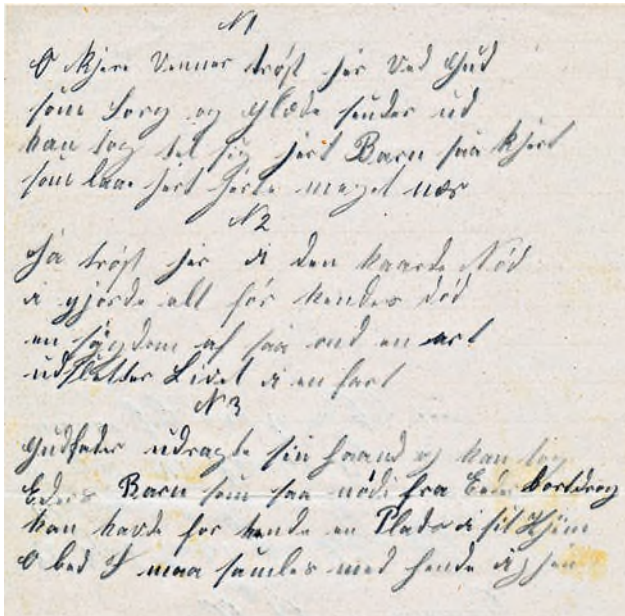 N1
O Kjere Venner trøst jer Ved Gud
som Sorg og Glæde sender ud
han tog tel sig jert Barn saa kjert
som laae jert Hjerte meget nær
N2
Ja trøst jer i den haarde Nød
i gjorde alt for hendes død
en sÿgdom af saa ond en art
udslætter Livet i en fart
N3
Gudfader udragte sin Haand og han tog
Eders Barn som saa nødi fra Eder bortdrog
han havde for hende en Plads i sit Hjem
O bed I maa samles med hende igjen